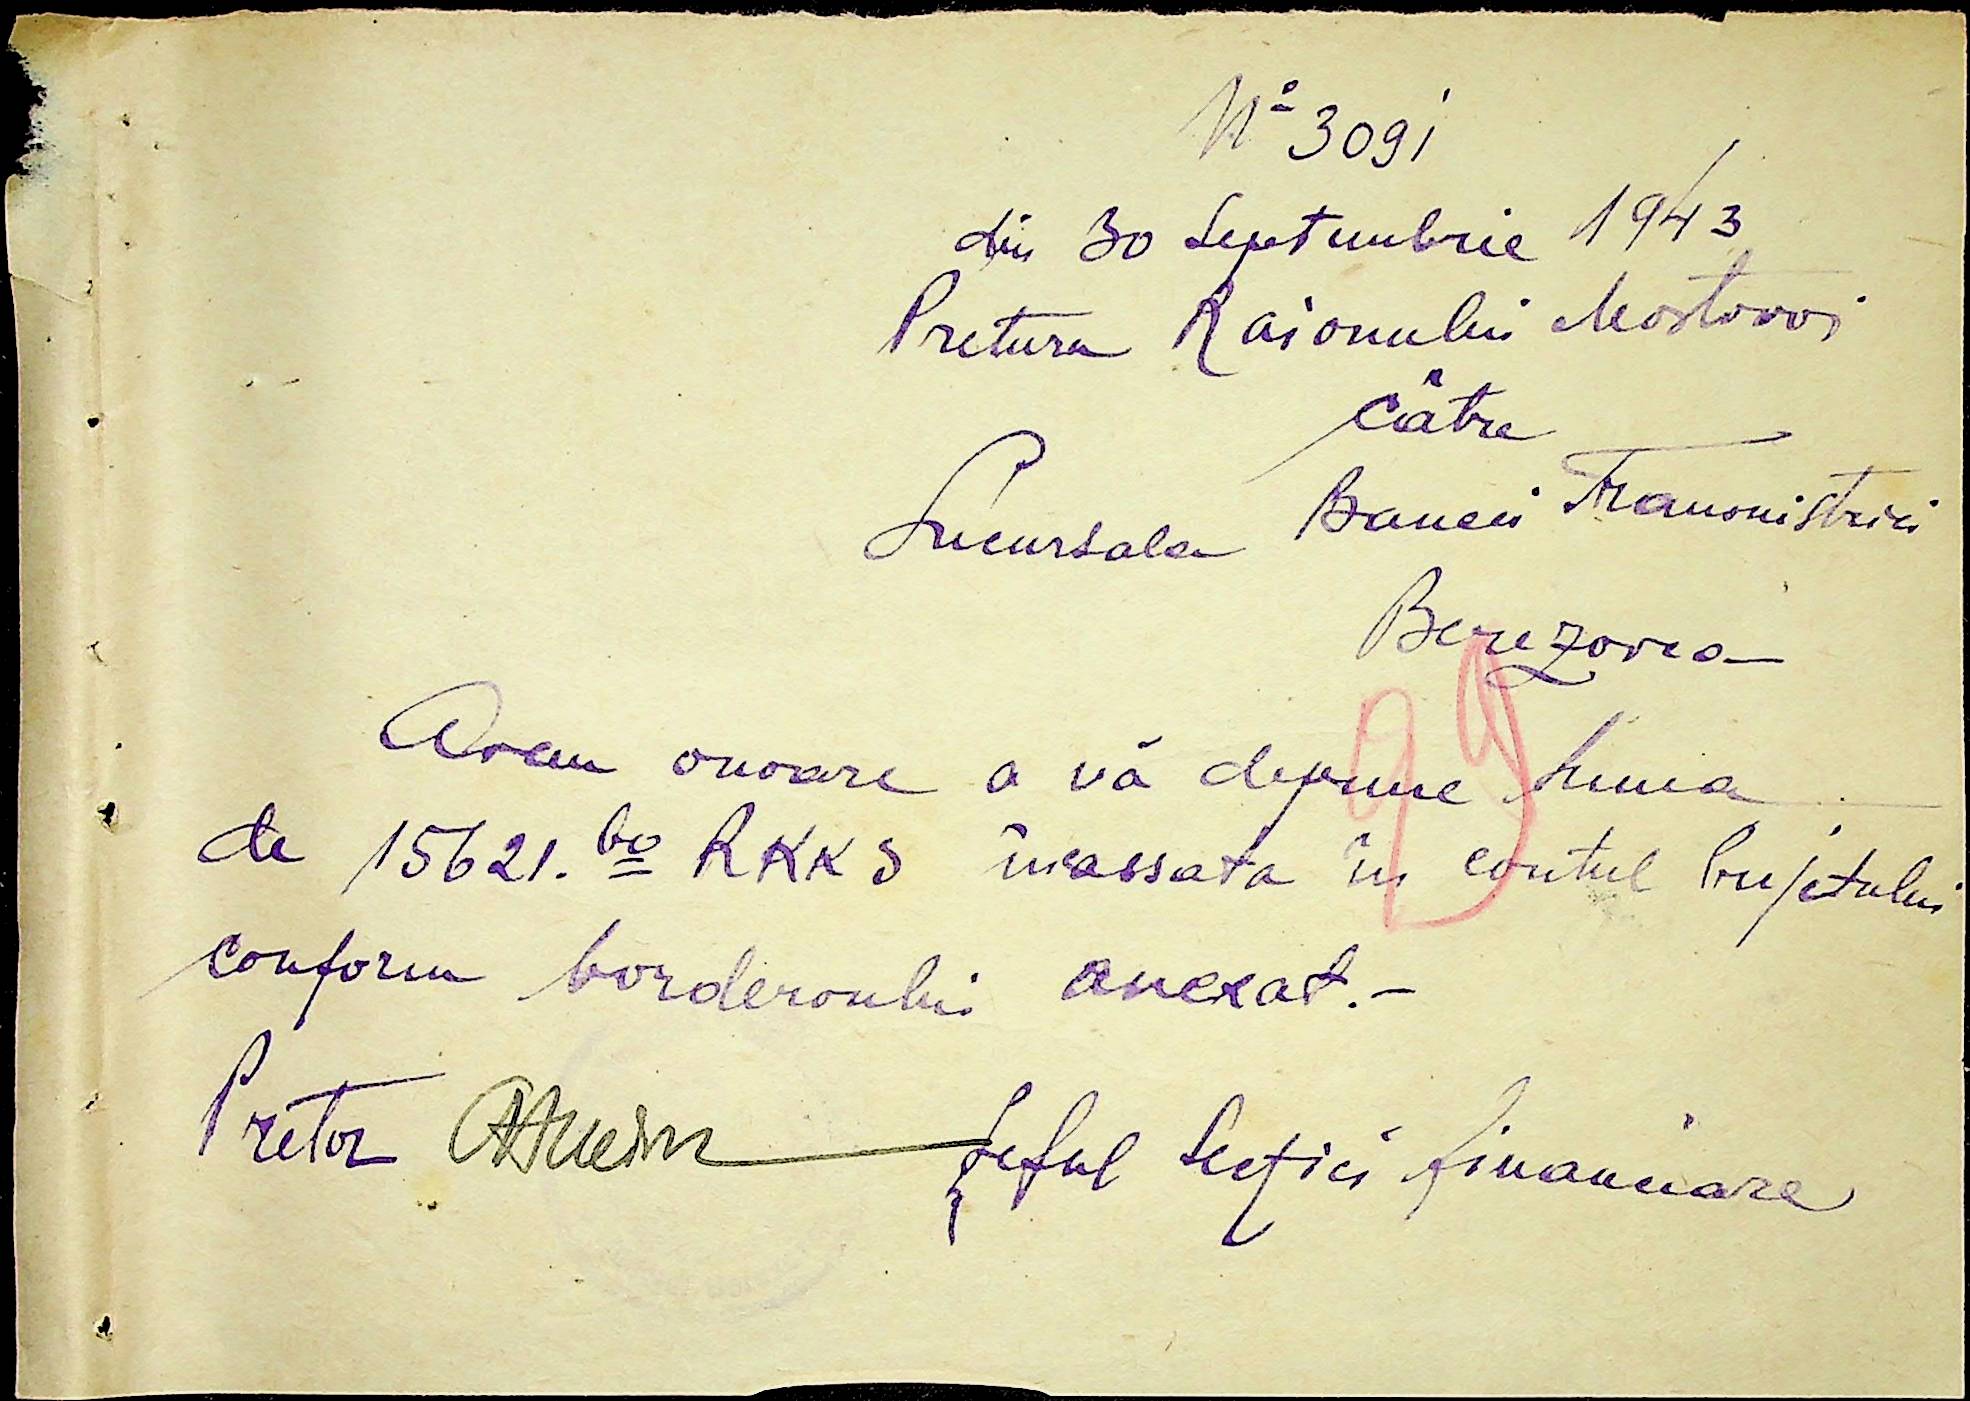 Nº 3091
din 30 Septembrie 1943
Pretura Raionului Mostovoi
Către
Sucursala Bancii Transnistriei
Berezovca
Avem onoare a vă depune suma
de 15621.60 RKKS încassata în contul bujetului
conform borderoului anexat.-
Pretor
Șeful Secției financiare